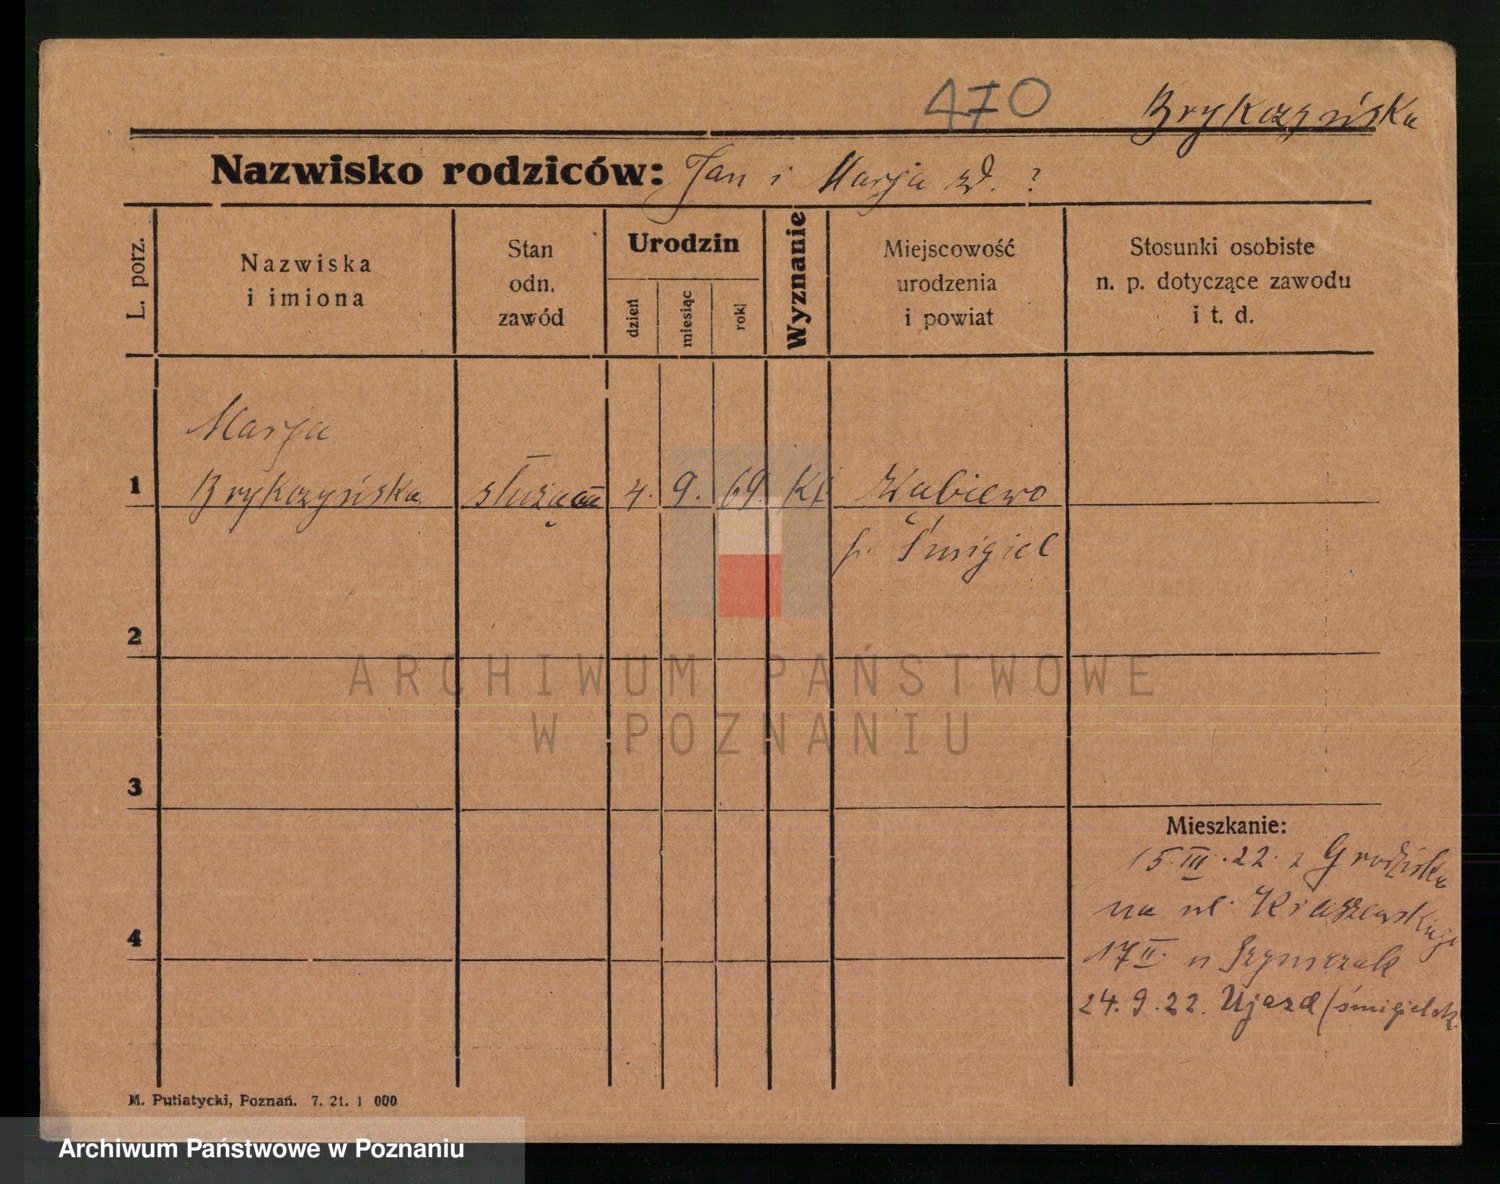 470
Brykczyńska
Nazwisko rodziców: Jan i Marja zd. ?
L. porz.
Nazwiska
i imiona
Stan
odn.
zawód
Urodzin
dzień
miesiąc
rok
Wyznanie
Miejscowość
urodzenia
i powiat
Stosunki osobiste
n. p. dotyczące zawodu
i t. d.
Marja
1 Brykczyńska służąca 4. 9. 69.
p. Śmigiel
2
3
4
Mieszkanie:
15.III.22. z Grodziska
na ul. Kraszewskiego
17 II. u Szymczak
24.9.22. Ujazd
M. Putiatycki, Poznań. 7. 21. 1 000
ARCHIWUM PAŃSTWOWE
W POZNANIU
Archiwum Państwowe w Poznaniu